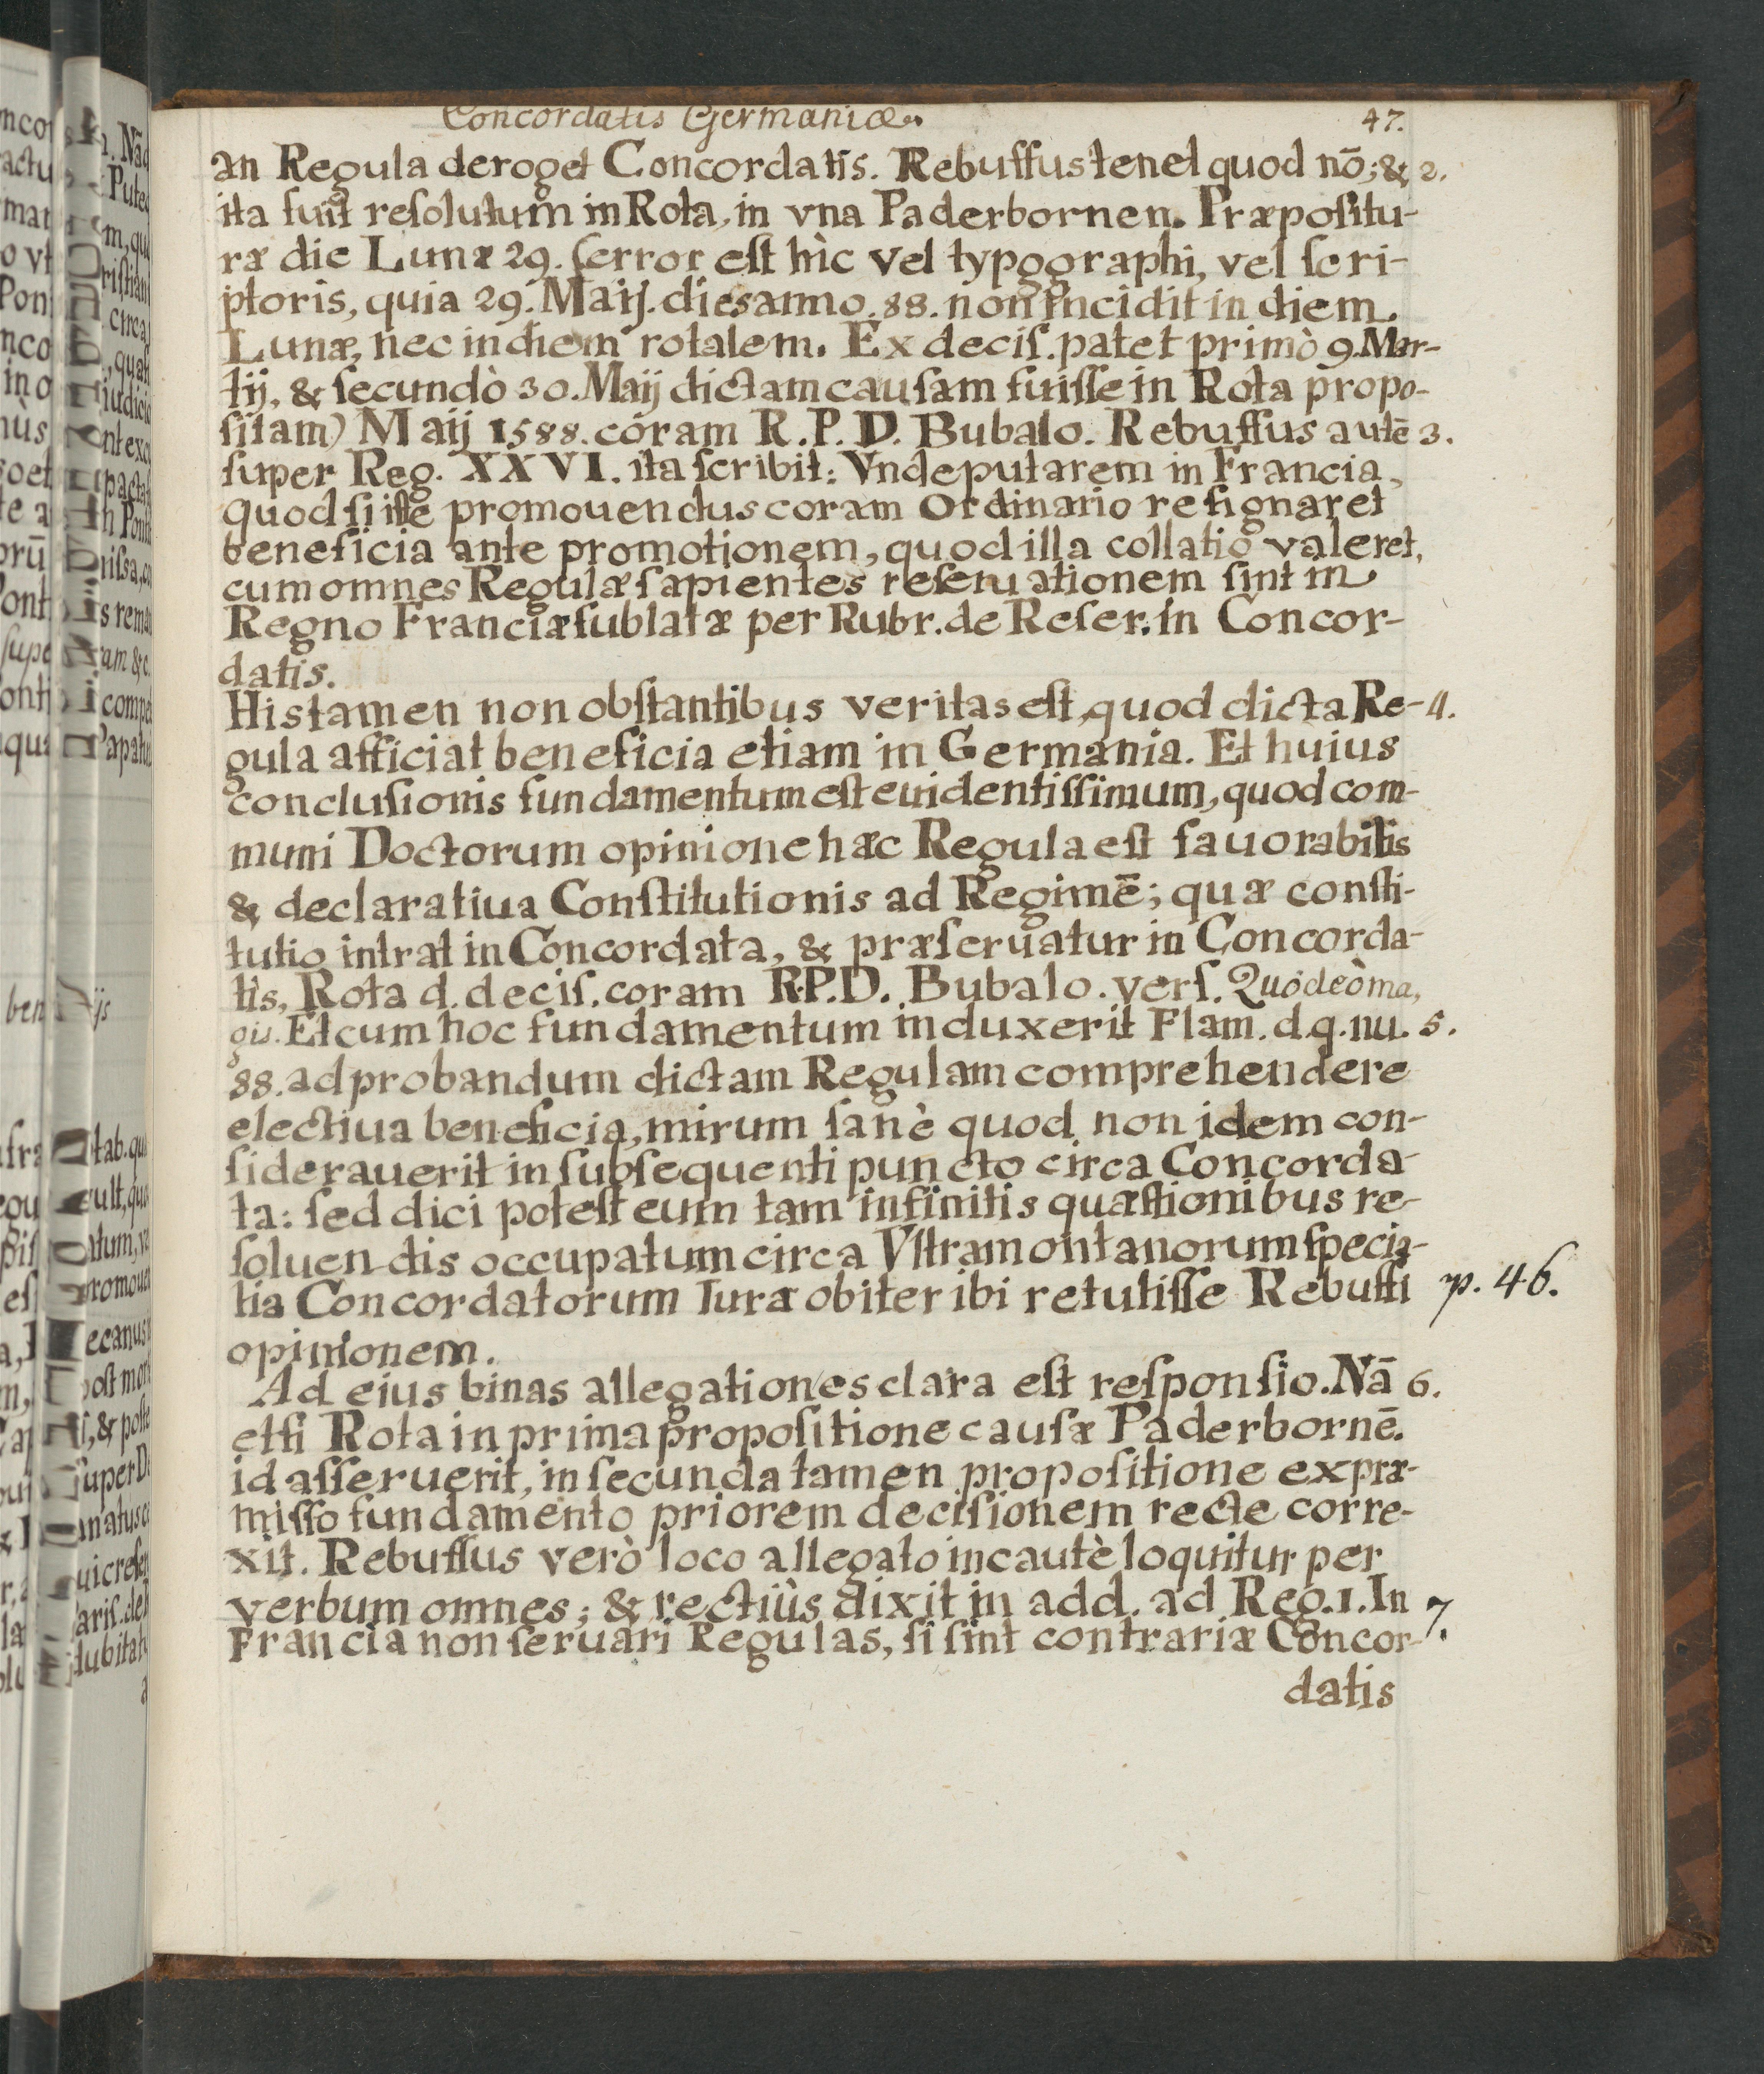 Concordatis Germaniæ. 47.
an Regula deroget Concordatis. Rebuffus tenet quod nō; & 2.
ita fuit reſolutum in Rota, in vna Paderbornen. Præpoſitu-
ræ die Lunæ 29. (error eſt hìc vel typographi, vel ſcri-
ptoris, quia 29. Maij. dies anno. 88. non incidit in diem
Lunæ, nec in diem rotalem. Ex deciſ. patet primò 9. Mar-
tij, & ſecundò 30. Maij dictam cauſam fuiſſe in Rota propo-
ſitam) Maij 1588. coram R. P. D. Bubalo. Rebuffus autē 3.
ſuper Reg. XXVI. ita ſcribit: Vnde putarem in Francia,
quod ſi iſte promouendus coram Ordinario reſignaret
beneficia ante promotionem, quod illa collatio valeret,
cum omnes Regulæ ſapientes reſeruationem ſint in
Regno Franciæ ſublatæ per Rubr. de Reſer. in Concor-
datis.
His tamen non obſtantibus veritas eſt, quod dicta Re- 4.
gula afficiat beneficia etiam in Germania. Et huius
concluſionis fundamentum eſt euidentiſſimum, quod com-
muni Doctorum opinione hæc Regula eſt fauorabilis
& declaratiua Conſtitutionis ad Regimē; quæ conſti-
tutio intrat in Concordata, & præſeruatur in Concorda-
tis, Rota d. deciſ. coram R.P.D. Bubalo. verſ. Quòd eò ma,
gis. Et cum hoc fundamentum induxerit Flam. d. q. nu. 5.
88. ad probandum dictam Regulam comprehendere
electiua beneficia, mirum ſanè quod non idem con-
ſiderauerit in ſubſequenti puncto circa Concorda-
ta: ſed dici poteſt eum tam infinitis quæſtionibus re-
ſoluendis occupatum circa Vltramontanorum ſpecia-
lia Concordatorum Iura obiter ibi retuliſſe Rebuffi p. 46.
opinionem.
Ad eius binas allegationes clara eſt reſponſio. Nā 6.
etſi Rota in prima propoſitione cauſæ Paderbornē.
id aſſeruerit, in ſecunda tamen propoſitione ex præ-
miſſo fundamento priorem deciſionem recte corre-
xit. Rebuffus verò loco allegato incautè loquitur per
verbum omnes; & rectiùs dixit in add. ad Reg. 1. In 7.
Francia non ſeruari Regulas, ſi ſint contrariæ Concor-
datis